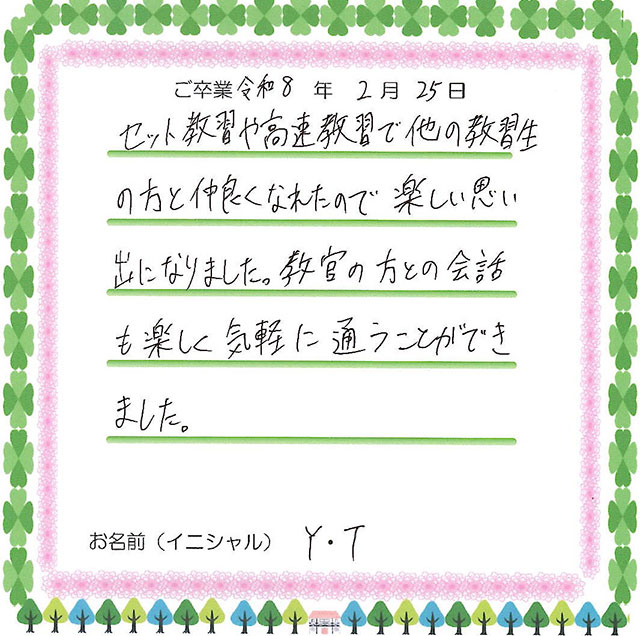 ご卒業令和8年2月25日
セット教習や高速教習で他の教習生
の方と仲良くなれたので楽しい思い
出になりました。教官の方との会話
も楽しく気軽に通うことができ
ました。
お名前（イニシャル） Y・T